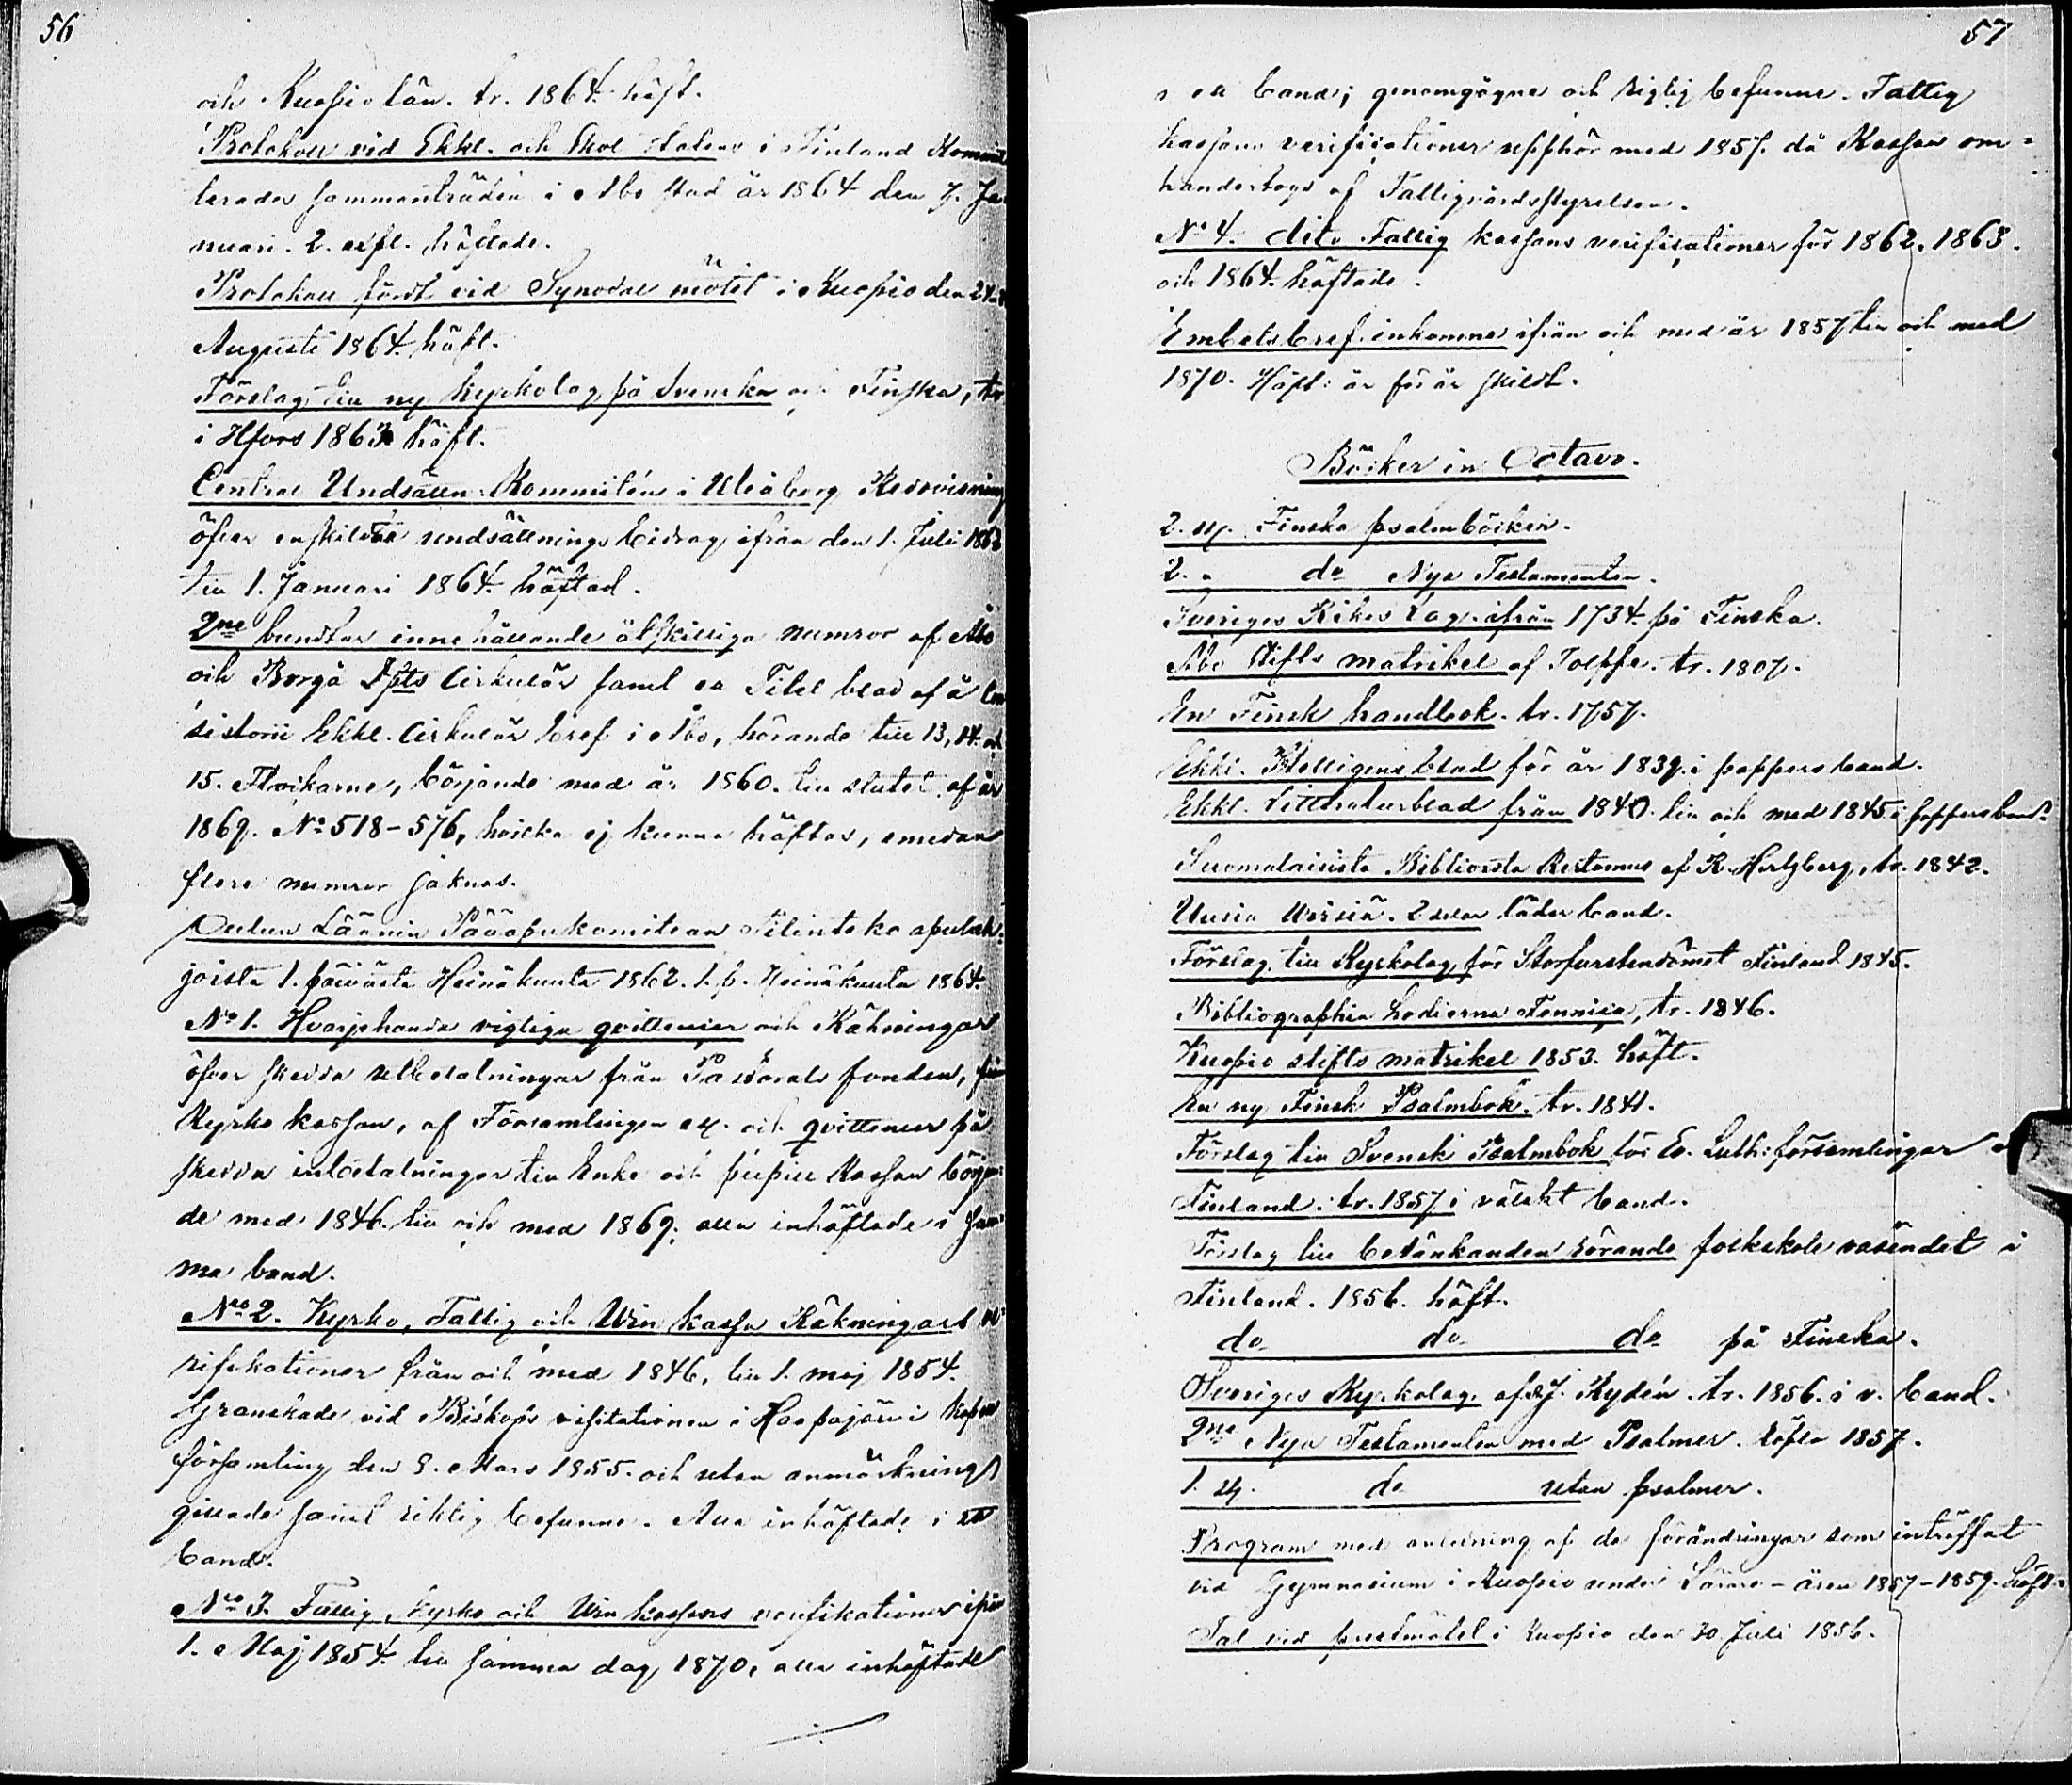 56
och Kuopio län. tr. 1864. häft.
Protokoll vid Ekkl. och Skol Statens i Finland Kommit
terades sammanträden i Åbo stad år 1864 den 7. Ja
nuari. 2. expl. häftade.
Protokoll fördt vid Synodal mötet i Kuopio den 24
Augusti 1864. häft.
Förslag till ny kyrkolag på Svenska och Finska, tr
i Hfors 1863 häft.
Central Undsättn. Kommitéens i Uleåborg Redovisning
öfver enskildta undsättnings bidrag ifrån den 1. Juli 1862
till 1. Januari 1864. häftad.
2ne bundtar innehållande åtskilliga numror af Åbo
och Borgå Dpts Cirkulär samt ett Titel blad af Å Con
sistorii Ekkl. Cirkulär bref i Åbo, hörande till 13, 14. och
15. Flockarne, börjande med år 1860. till slutet af år
1869. No 518-576, hvilka ej kunna häftas, emedan
flere numror saknas.
Oulun Läänin Pääapukomitean Tilinteko apulah
joista 1. päivästä Heinäkuuta 1862. 1. p. Heinäkuuta 1864.
No 1. Hvarjehanda vigtiga qvittenser och Räkningar
öfver skedda utbetalningar från Pastorats fonden,
Kyrko kassan, af Församlingen etc. och qvittenser på
skedda inbetalningar till Enke och pupill Kassan början
de med 1846. till och med 1869. alla inhäftade i sam
ma band.
No 2. Kyrko, Fattig och Vin kassa Räkningars ve
rifikationer från och med 1846, till 1. maj 1854.
Granskade vid Biskops visitationen i Haapajärvi kapell
församling den 8. Mars 1855. och utan anmärkning
gillade samt riktig befunne. Alla inhäftade i ett
band.
No 3. Fattig, Kyrko och Vin kassans verifikationer ifrån
1. Maj 1854. till samma dag 1870, alla inhäftade
57
i ett band; genomgågne och rigtig befunne. Fattig
kassans verificationer upphör med 1857. då Kassan om-
händertogs af Fattigvårdsstyrelsen.
No 4. dito Fattig kassans verifikationer för 1862. 1863.
och 1864. häftade.
Embetsbref inkomne ifrån och med år 1857 till och med
1870. Häft: år för år skildt.
Böcker in Octavo.
2. st. Finska psalmböcker.
2. " do Nya Testamenten.
Sveriges Rikes Lag ifrån 1734. på Finska.
Åbo Stifts matrikel af Tolpfe. tr. 1807.
En Finsk handbok. tr. 1757.
Ekkl. Intelligens blad för år 1839. i pappers band.
Ekkl. Litteraturblad från 1840. till och med 1845. i pappers band.
Suomalaisista Bibliorsta Kertomus af R. Hertzberg, tr. 1842.
Uusia Virsiä. 2 delar läder band.
Förslag till Kyrkolag för Storfurstendömet Finland 1845.
Bibliographia hodierna Fennica, tr. 1846.
Kuopio stifts matrikel 1853. häft.
En ny Finsk Psalmbok. tr. 1841.
Förslag till Svensk Psalmbok för Ev. Luth: församlingar
Finland. tr. 1857 i välskt band.
Förslag till betänkanden rörande folkskole väsendet i
Finland. 1856. häft.
do do do på Finska.
Sveriges Kyrkolag, af J. Rydén. tr. 1856. i v. band.
2ne Nya Testamenten med Psalmer. köpta 1857.
1. st. do utan psalmer.
Program med anledning af de förändringar som inträffat
vid Gymnasium i Kuopio under Läroåren 1857-1859. häft.
Tal vid prestmötet i Kuopio den 30 Juli 1856.